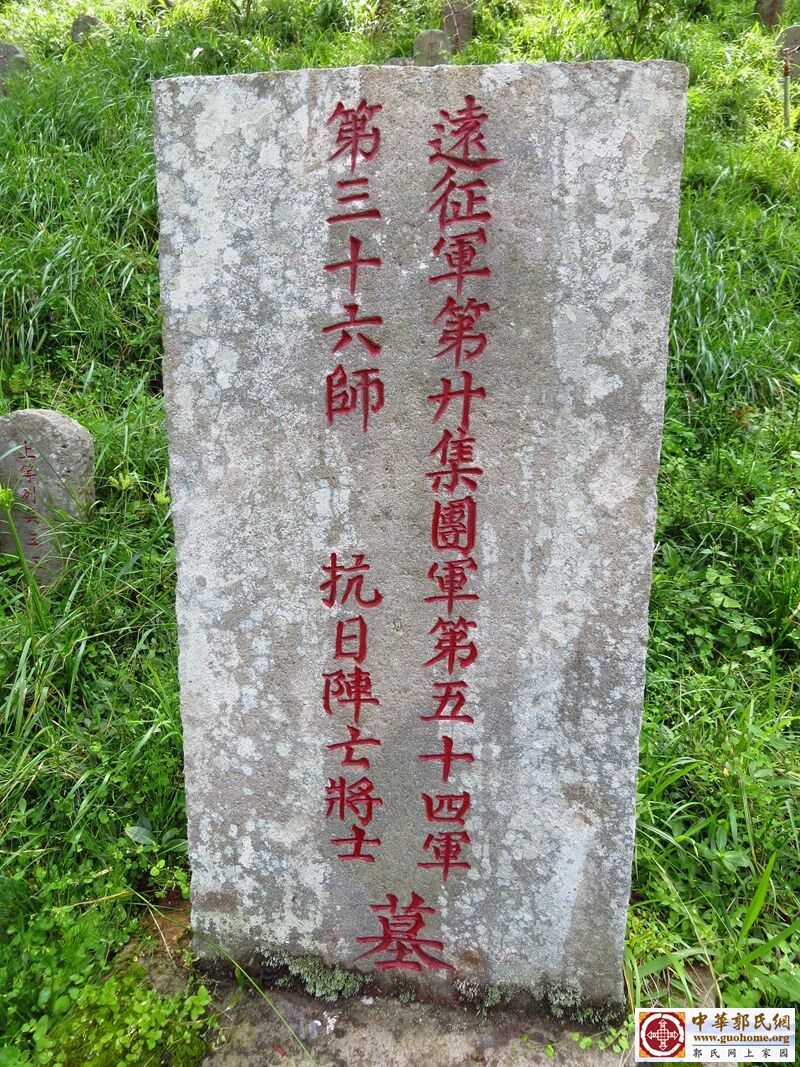 遠征軍第廿集團軍第五十四軍
第三十六師 抗日陣亡將士
墓
上等列兵王
中華郭氏網
www.guohome.org
郭氏网上家园